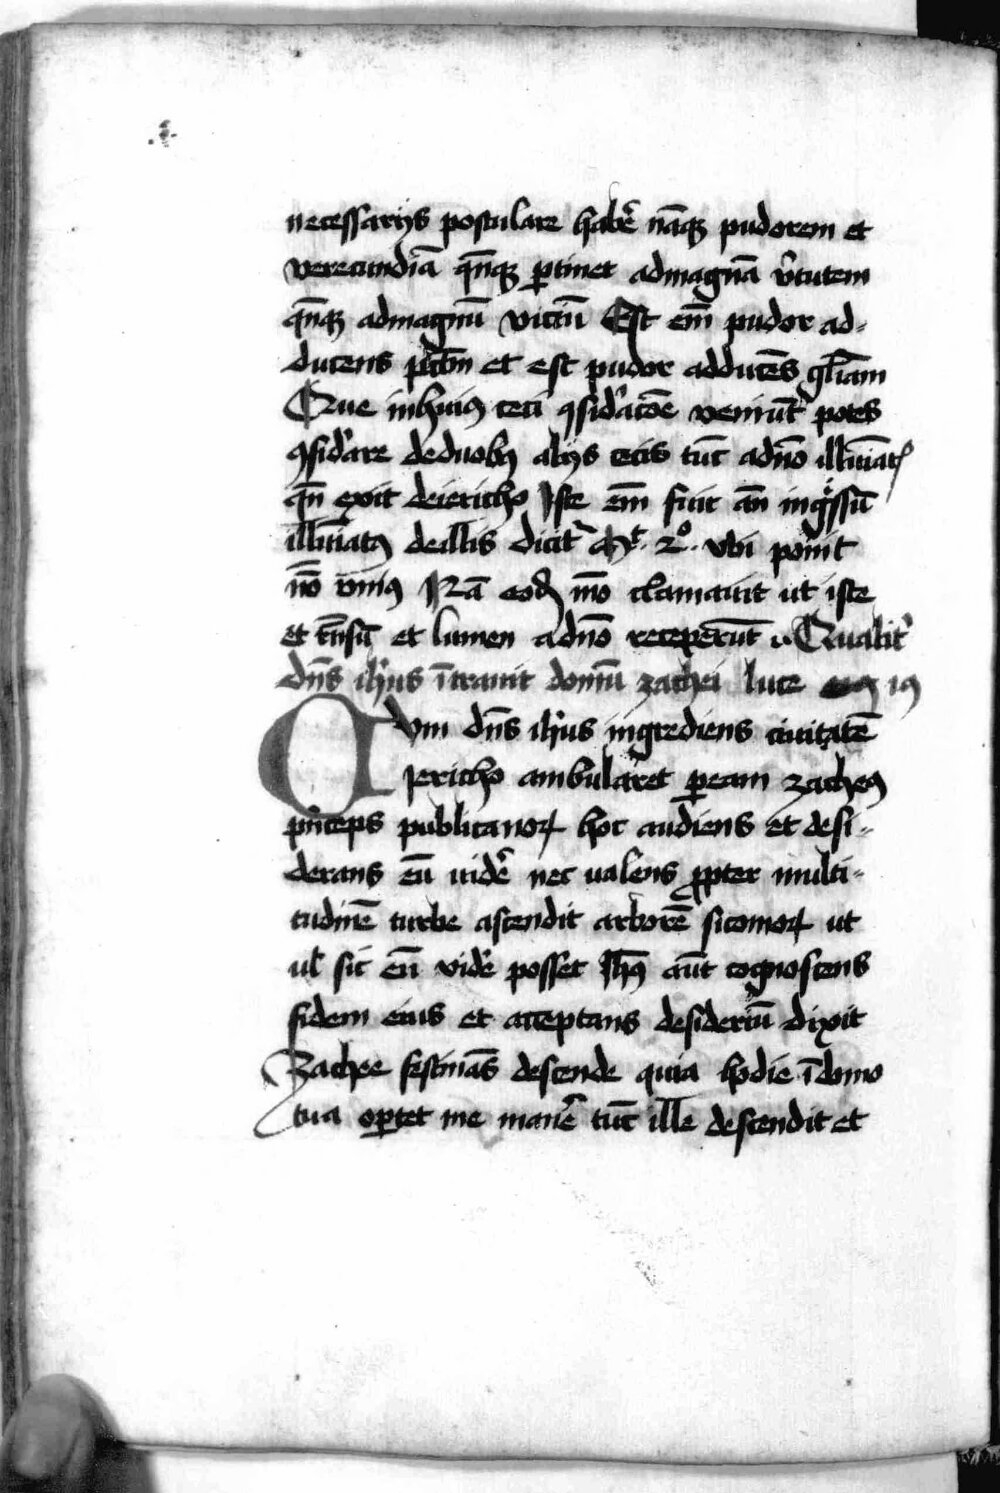 necessarijs postulare habe᷑ nāqꝫ pudorem et
verecundiā qn̄qꝫ ꝑtinet admagnā v᷑tutem
qn̄qꝫ admagnū viciū Est em̄ pudor ad-
ducens pctm̄ et est pudor adducēs gl̄iam
Que inhuiꝰ ceci ꝯsid᷑acōe veniūt potes
ꝯsid᷑are deduobꝫ alijs cecis tūc adn̄o illuīatꝭ
qn̄ exit deiericho Iste em̄ fuit an̄ ingͥssū
illuīatꝰ deillis dicit᷑ 2º ubi ponit
nō vniꝰ Nā eodꝫ mō clamauit ut iste
et lumen adn̄o receperūt Qualit᷑
dn̄s ih̄us ītrauit domū zachei luce 19
Cvm dn̄s ih̄us ingrediens ciuitatē
Iericho ambularet ꝑeam zacheꝰ
pͥnceps publicanoꝝ hoc audiens et desi-
derans eū uide᷑ nec ualens ꝓpter multi-
tudinē turbe ascendit arborē sicomoꝝ ut
ul̄ sic eū vide᷑ posset Ih̄ꝰ aūt cognoscens
fidem eius et acceptans desideriū dixit
Zachee festinās descende quia hodie ī domo
tua oꝑtet me mane᷑ tūc ille descendit et